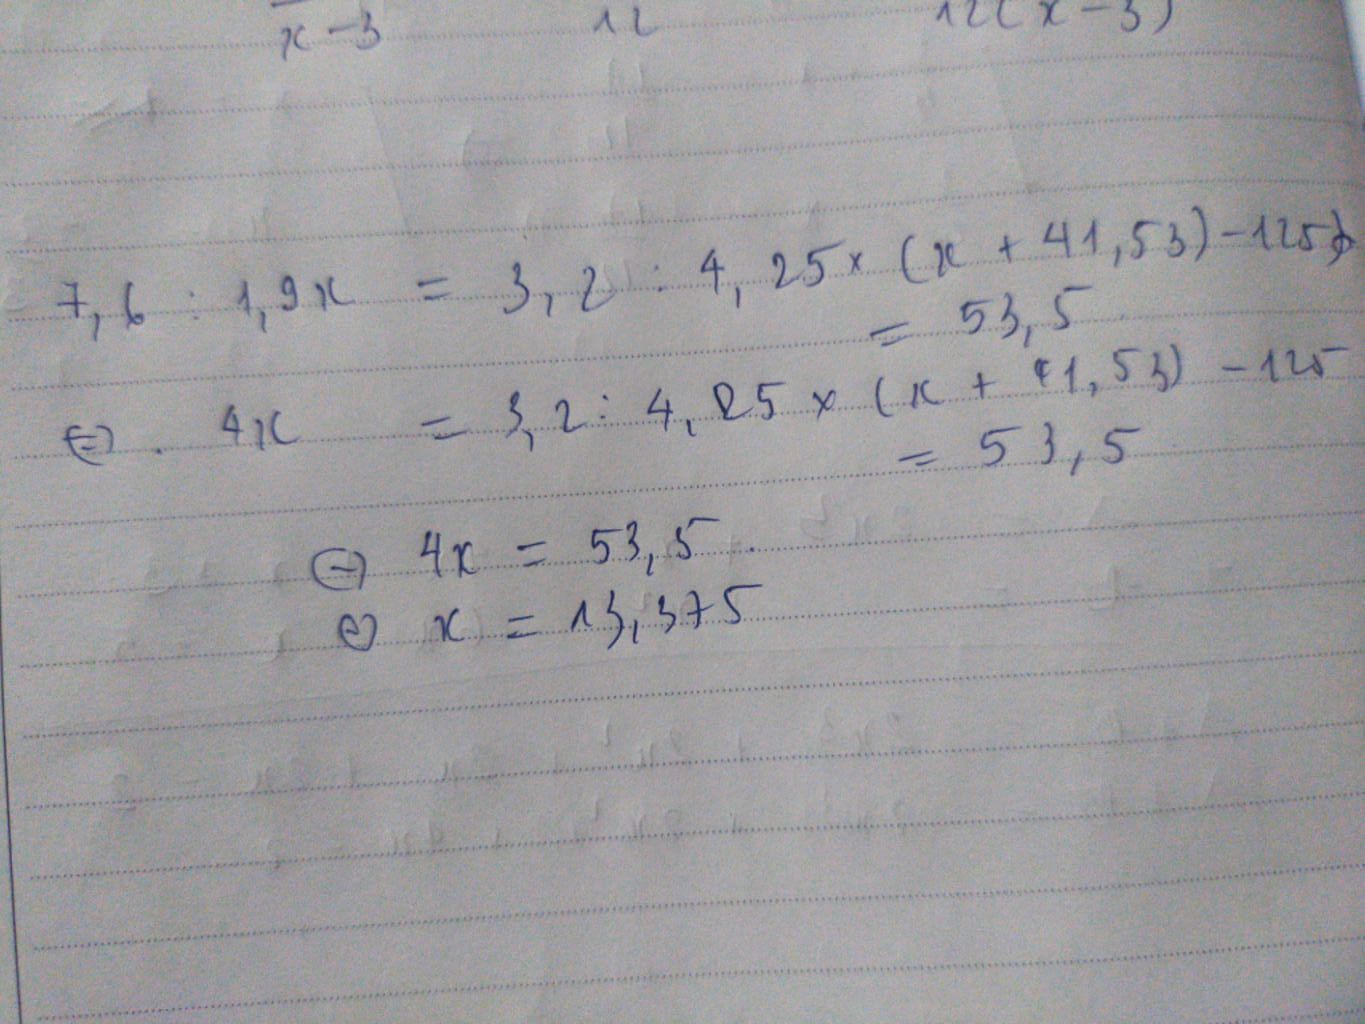 x - 3 12 12(x - 3)
7,6 : 1,9x = 3,2 : 4,25 x (x + 41,53) - 125
= 53,5
⇔ . 4x = 3,2 : 4,25 x (x + 41,53) - 125
= 53,5
⇔ 4x = 53,5 .
⇔ x = 13,375